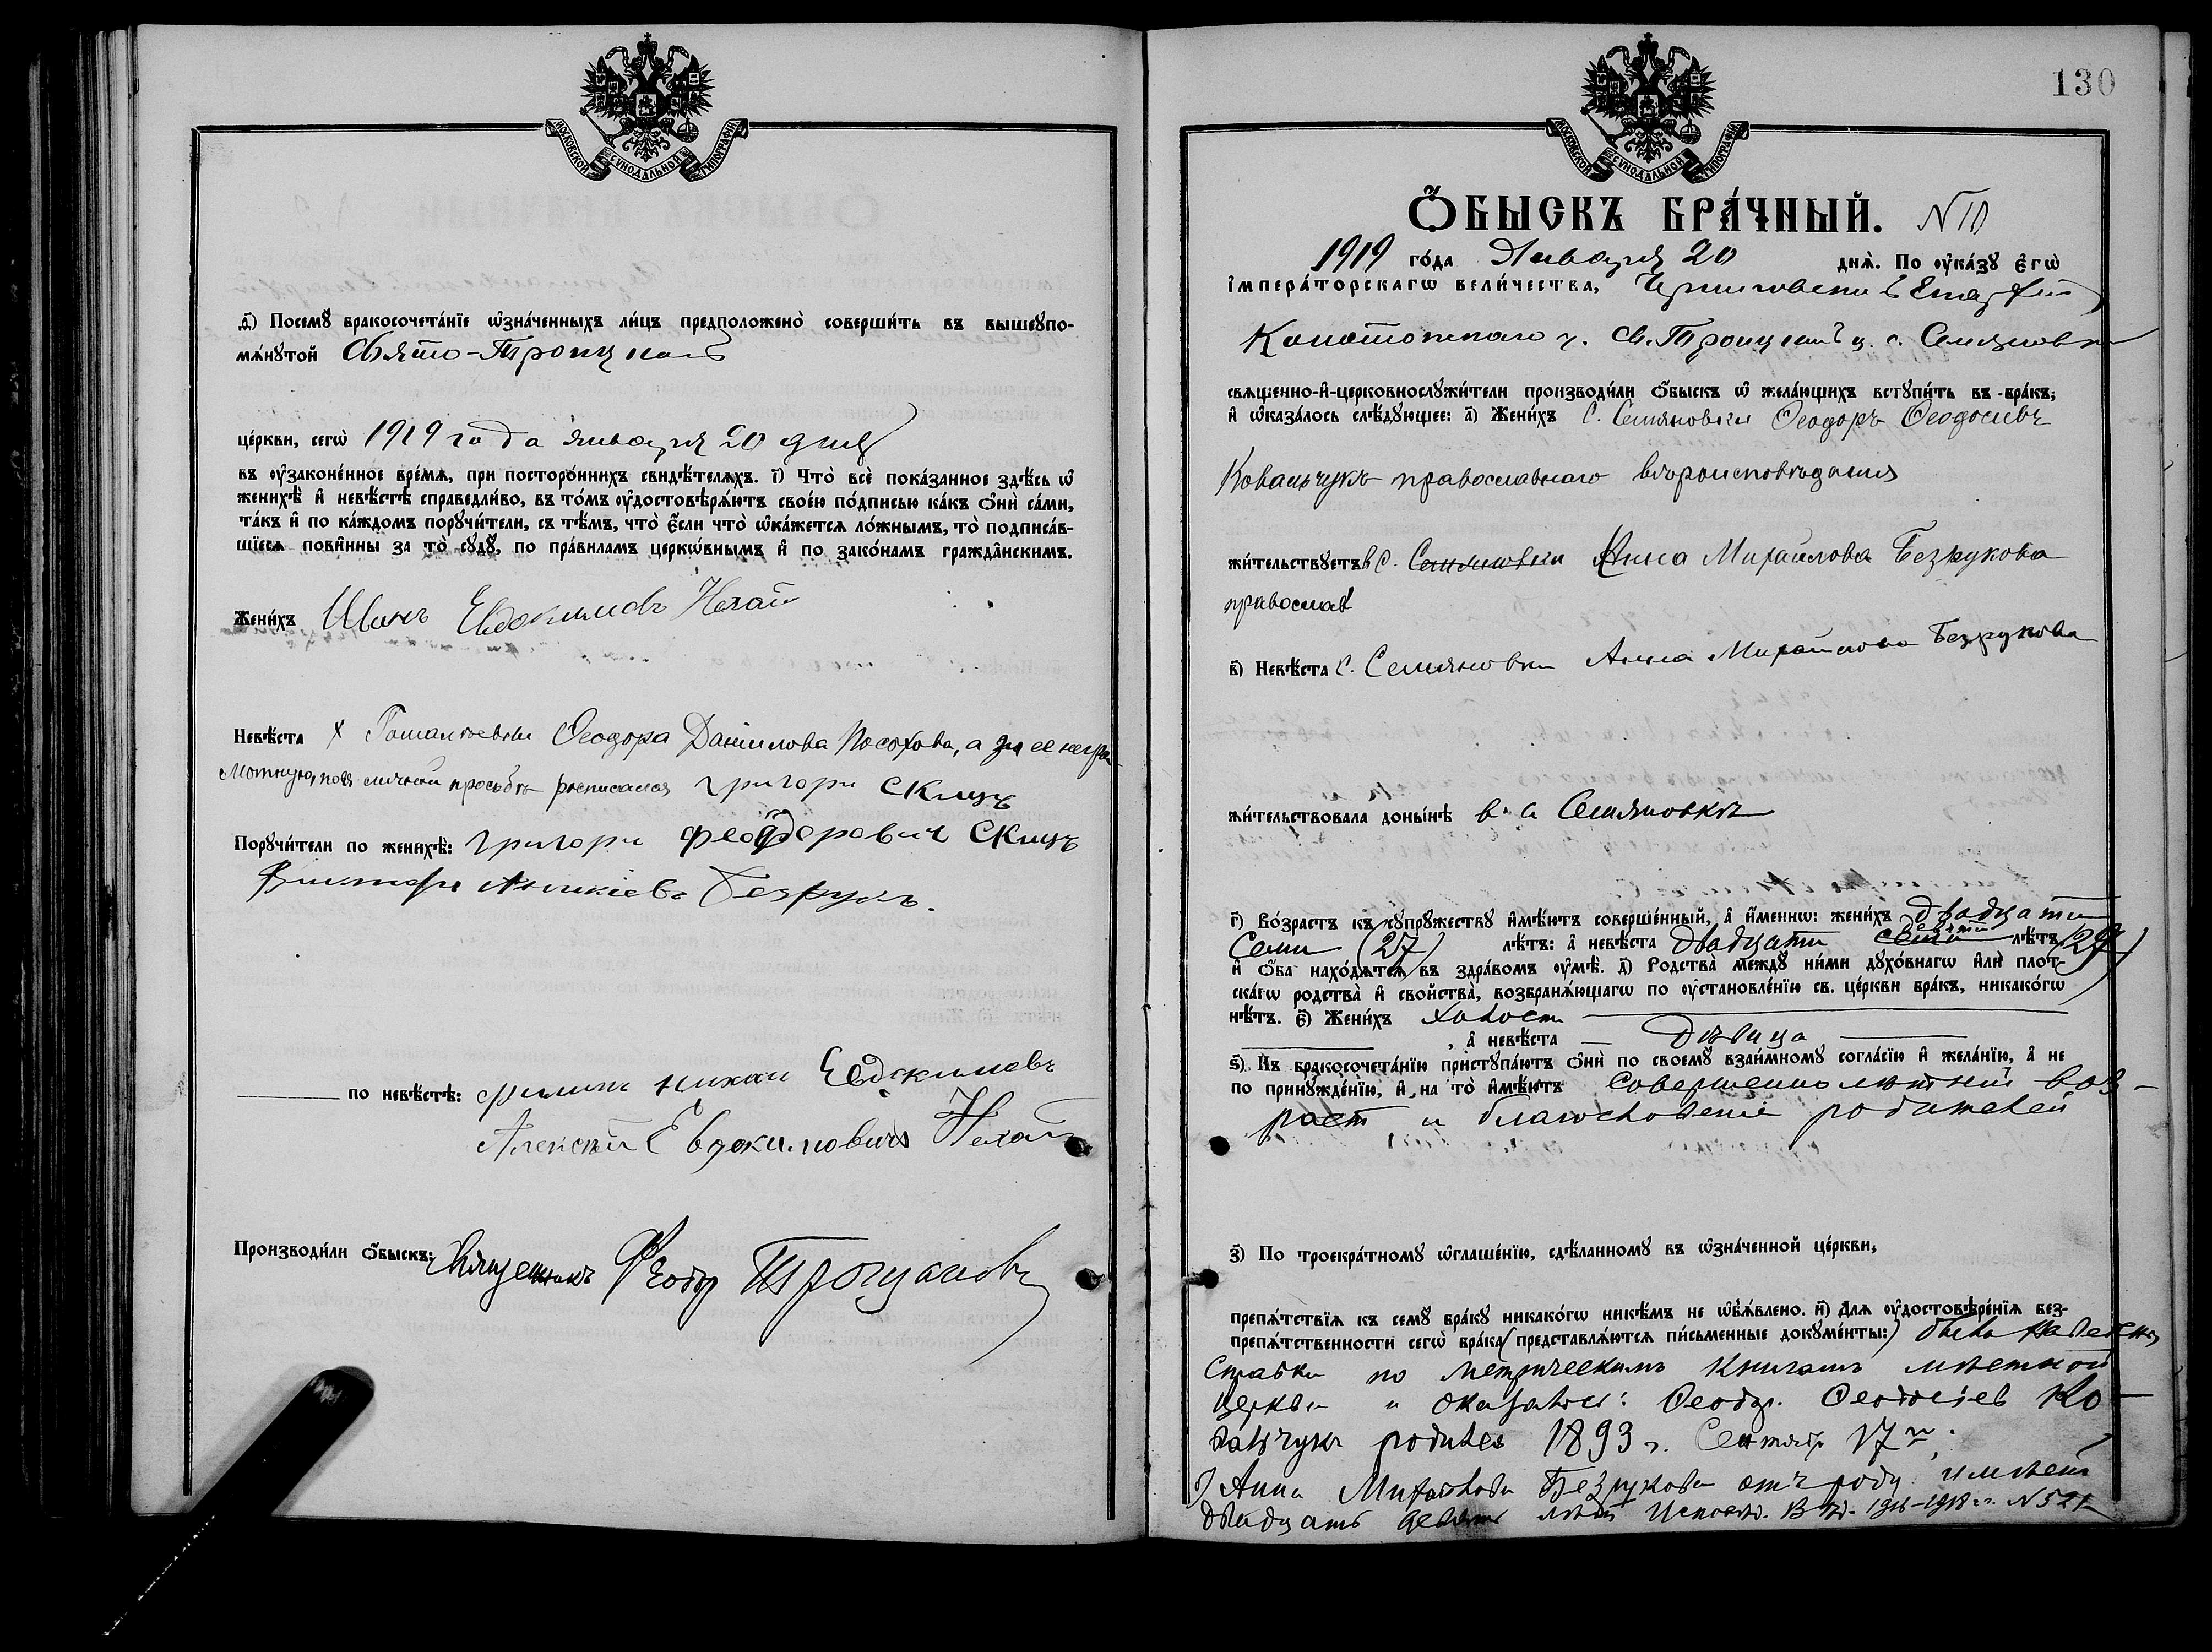 МОСКОВСКОЙ СУНОДАЛЬНОЙ ТИПОГРАФІИ
ѳ҃) Посемꙋ̀ бракосочета́нїе ѡ҆зна́ченныхъ ли́цъ предположено̀ соверши́ть въ вышеꙋпо-
мѧ́нꙋтой Свято-Троицкой
це́ркви, сегѡ̀ 1919 года января 20 дня
въ ᲂу҆законе́нное вре́мѧ, при посторо́ннихъ свидѣ́телѧхъ. і҃) Что̀ всѐ пока́занное здѣ́сь ѡ҆
женихѣ̀ и҆ невѣ́стѣ справедли́во, въ то́мъ ᲂу҆достовѣрѧ́ютъ свое́ю по́дписью ка́къ ѻ҆нѝ са́ми,
та́къ и҆ по ка́ждомъ порꙋчи́тели, съ тѣ́мъ, что̀ є҆́сли что̀ ѡ҆ка́жетсѧ ло́жнымъ, то̀ подписа́в-
шїесѧ пови́нны за то̀ сꙋдꙋ̀, по пра́виламъ церкѡ́внымъ и҆ по зако́намъ гражда́нскимъ.
Жени́хъ Иванъ Евдокимовъ Нехай
Невѣ́ста х Феодора Данилова Посохова, а за ее негра
мотную, по ея личной просьбѣ росписался григори Склиръ
Порꙋчи́тели по женихѣ̀: григори феодорович Склиръ
Аникіевъ Безрукъ.
по невѣ́стѣ: филипъ нихаи Евдокимовъ
Алексѣй Евдокимовичъ Нехай
Производи́ли ѻ҆́быскъ: Священникъ Феодр Троцановъ
130
МОСКОВСКОЙ СУНОДАЛЬНОЙ ТИПОГРАФІИ
Ѻ҆́БЫСКЪ БРА́ЧНЫЙ. N 10
1919 го́да Января 20 днѧ̀. По ᲂу҆ка́зꙋ є҆гѡ̀
і҆мпера́торскагѡ вели́чества, Черниговской Епархіи
Конотопскаго у. Св. Троицкой ц. с. Семяновки
свѧщенно-и҆-церковнослꙋжи́тели производи́ли ѻ҆́быскъ ѡ҆ жела́ющихъ встꙋпи́ть въ бра́къ,
и҆ ѡ҆каза́лось слѣ́дꙋющее: а҃) Жени́хъ С. Семяновки Ѳеодоръ Ѳеодосіевъ
Ковальчукъ православнаго вѣроисповѣданія
жи́тельствꙋетъ в с. Семяновки Анна Михайлова Безрукова
православ
в҃) Невѣ́ста с. Семяновки Анна Михайлова Безрукова
жи́тельствовала доны́нѣ в с Семяновкѣ
г҃) Во́зрастъ къ сꙋпрꙋ́жествꙋ и҆мѣ́ютъ соверше́нный, а҆ и҆́меннѡ: жени́хъ двадцати
семи (27) лѣ́тъ: а҆ невѣ́ста двадцати девяти семи лѣ́тъ (29)
и҆ ѻ҆́ба нахо́дѧтсѧ въ здра́вомъ ᲂу҆мѣ̀. д҃) Родства̀ междꙋ̀ ни́ми дꙋхо́внагѡ и҆лѝ плот-
ска́гѡ родства̀ и҆ свойства̀, возбранѧ́ющагѡ по ᲂу҆становле́нїю св. це́ркви бра́къ, никако́гѡ
нѣ́тъ. є҃) Жени́хъ холост
, а҆ невѣ́ста Дѣвица
ѕ҃) Къ бракосочета́нїю пристꙋпа́ютъ ѻ҆нѝ по своемꙋ̀ взаи́мномꙋ согла́сїю и҆ жела́нїю, а҆ не
по принꙋжде́нїю, и҆ на то̀ и҆мѣ́ютъ совершеннолѣтній воз-
раст и благословение родителей
з҃) По троекра́тномꙋ ѡ҆глаше́нїю, сдѣ́ланномꙋ въ ѡ҆зна́ченной це́ркви,
препѧ́тствїѧ къ семꙋ̀ бра́кꙋ никако́гѡ никѣ́мъ не ѡ҆б̾ѧ́влено. и҃) Длѧ ᲂу҆достовѣре́нїѧ без-
препѧ́тственности сегѡ̀ бра́ка (представлѧ́ютсѧ пи́сьменные докꙋме́нты:) была наведена
справка по метрическимъ книгамъ мѣстной
церкви и оказалось: Ѳеодр. Ѳеодосіев Ко-
вальчукъ родился 1893 г. Сентябр 17го.
Анна Михайлова Безрукова отъ роду имѣетъ
двадцать девять лѣтъ Исповѣд. 1918 г. N 521